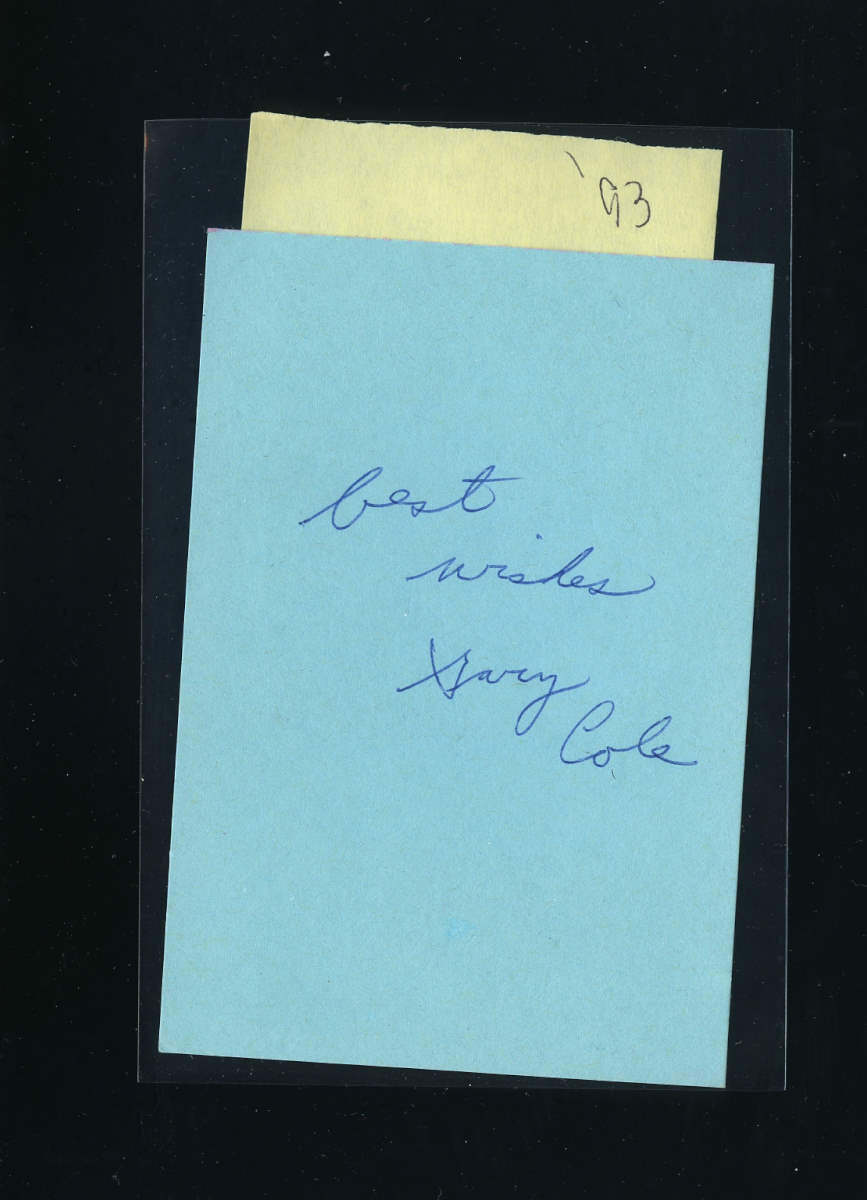 '93
best
wishes
Gary
Cole